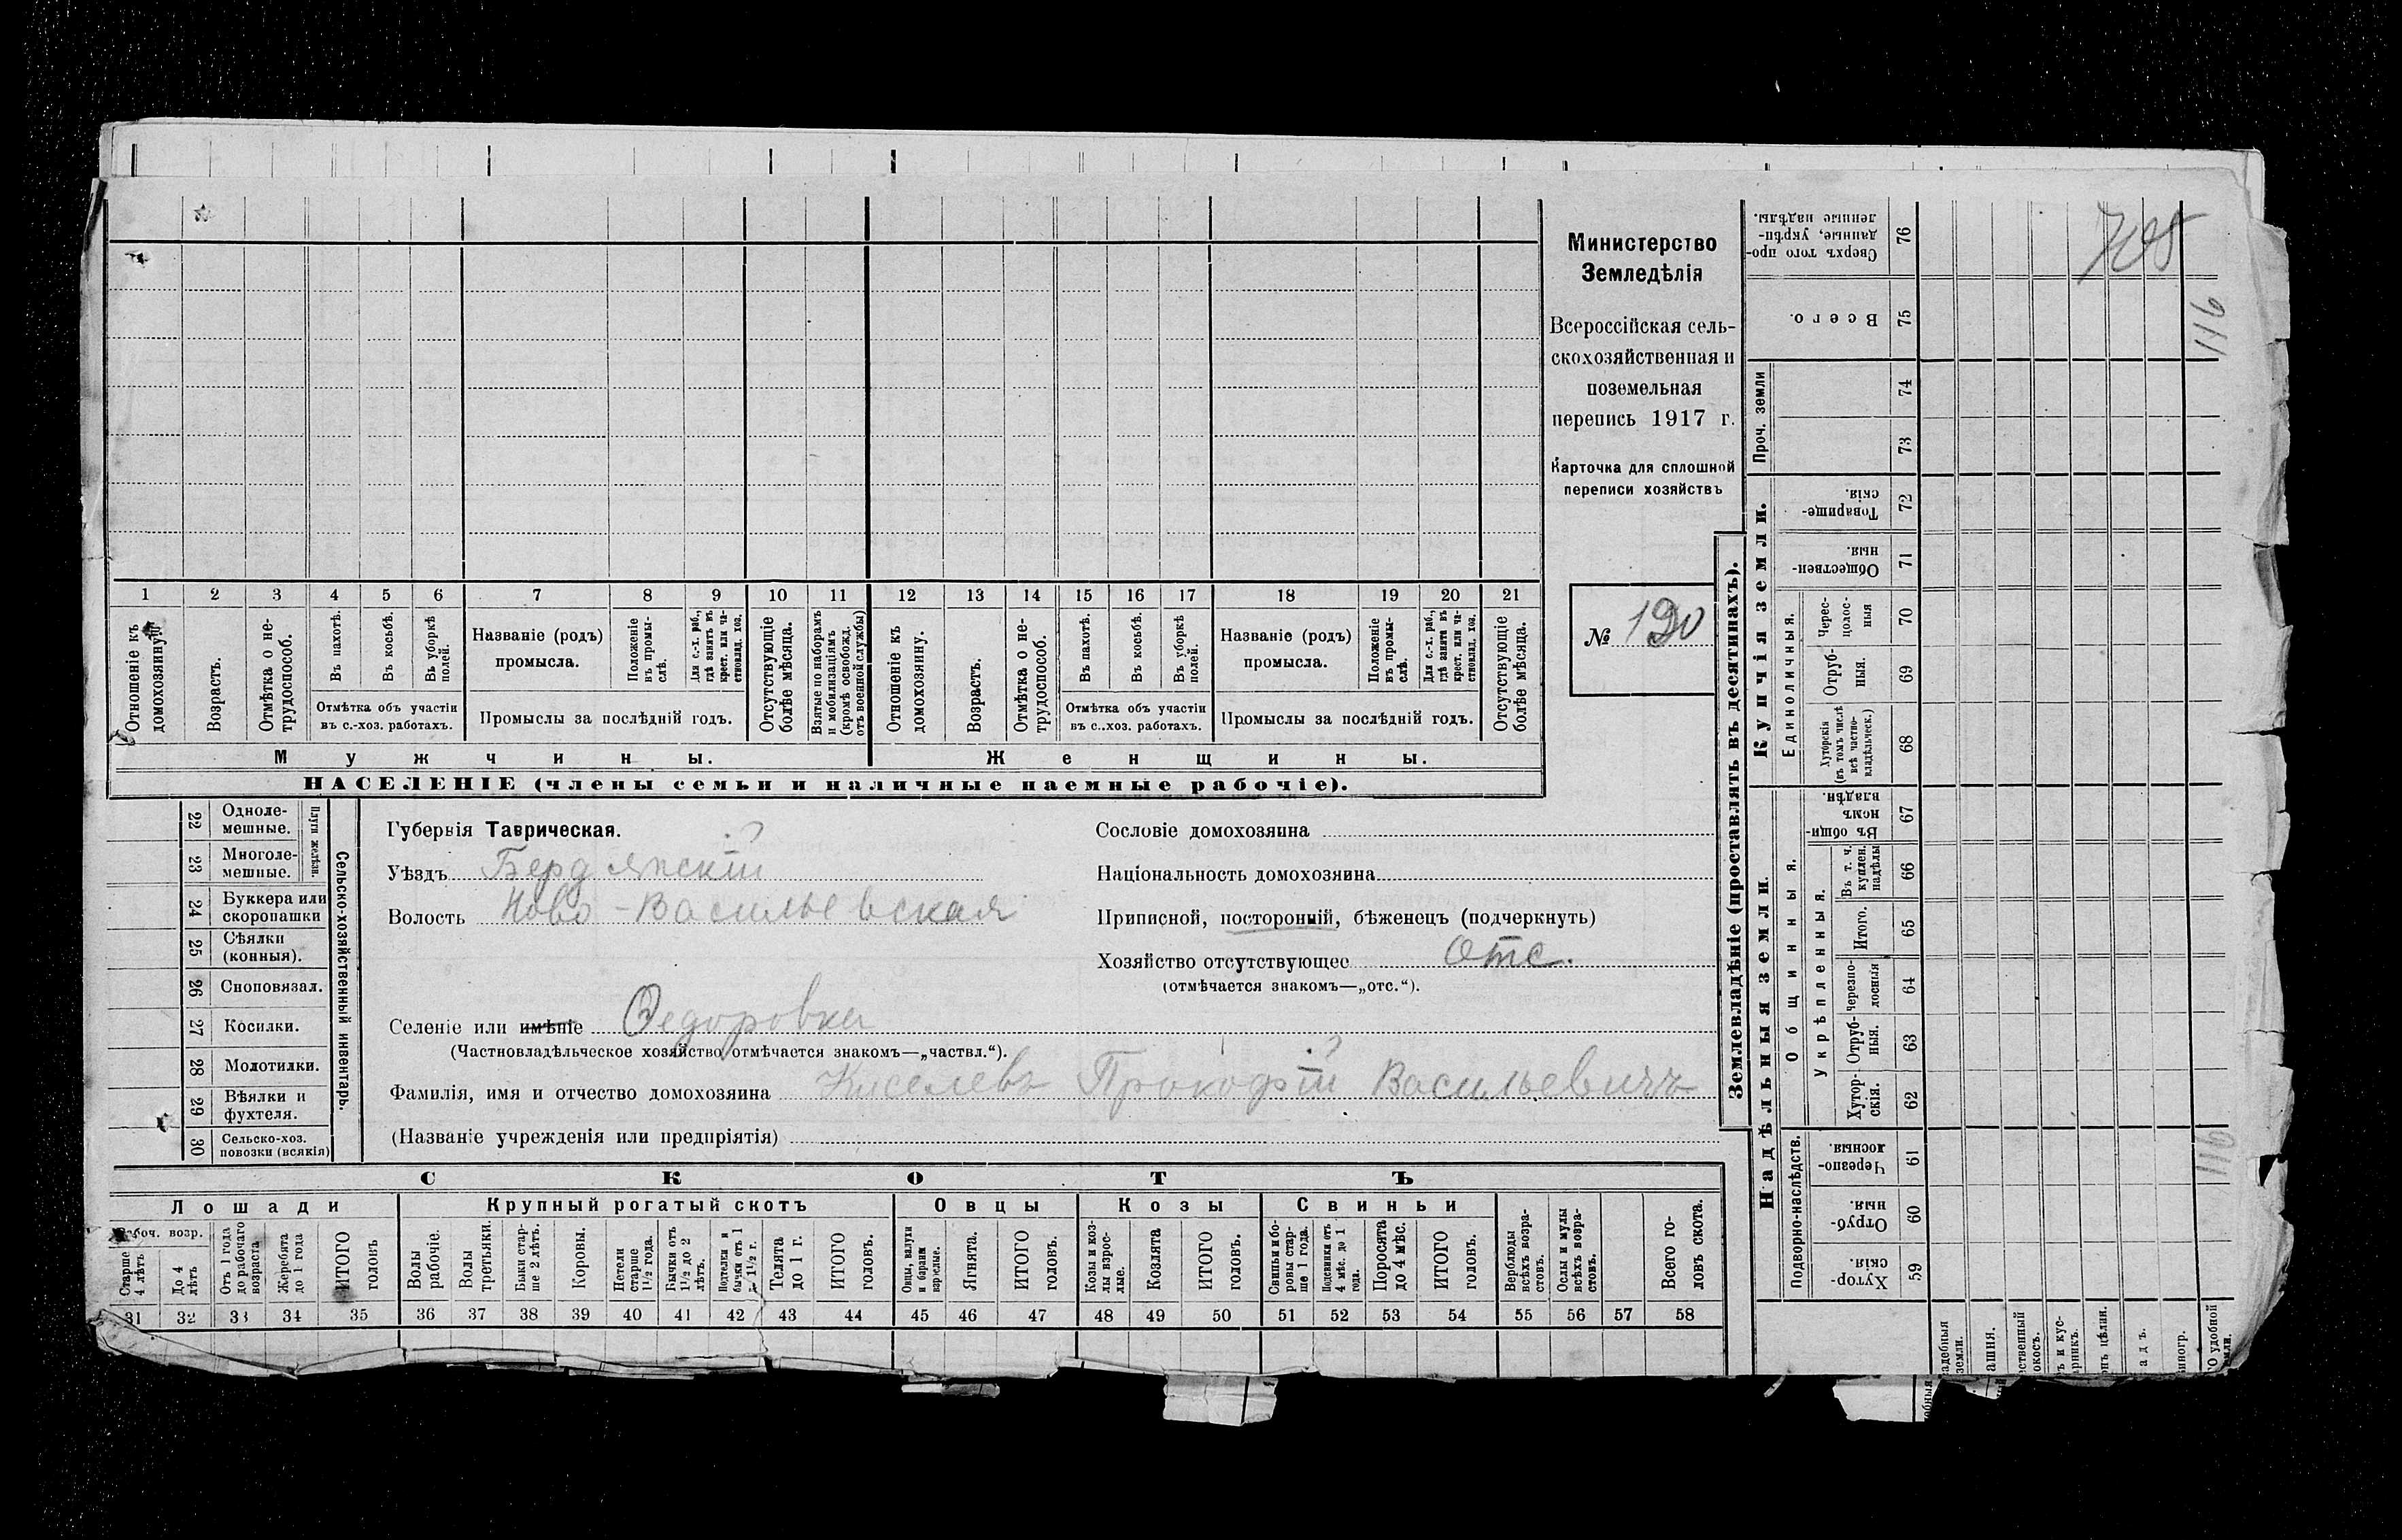 1 2 3 4 5 6 7 8 9 10 11 12 13 14 15 16 17 18 19 20 21
Отношеніе къ домохозяину.
Возрастъ.
Отмѣтка о не-
трудоспособ.
Въ пахотѣ.
Въ косьбѣ.
Въ уборкѣ
полей.
Отмѣтка объ участіи
въ с.-хоз. работахъ.
Названіе (родъ)
промысла.
Положеніе
въ промы-
слѣ.
Для с.-х. раб.,
гдѣ занятъ въ
крест. или ча-
стновлад. хоз.
Промыслы за послѣдній годъ.
Отсутствующіе
болѣе мѣсяца.
Взятые по наборамъ
и мобилизаціямъ
(кромѣ освобожд.
отъ военной службы)
Отношеніе къ
домохозяину.
Возрастъ.
Отмѣтка о не-
трудоспособ.
Въ пахотѣ.
Въ косьбѣ.
Въ уборкѣ
полей.
Отмѣтка объ участіи
въ с..хоз. работахъ.
Названіе (родъ)
промысла.
Положеніе
въ промы-
слѣ.
Для с.-х. раб.,
гдѣ занята въ
крест. или ча-
стновлад. хоз.
Промыслы за послѣдній годъ.
Отсутствующіе
болѣе мѣсяца.
Мужчины.
Женщины.
НАСЕЛЕНІЕ (члены семьи и наличные наемные рабочіе).
Министерство
Земледѣлія
Всероссійская сель-
скохозяйственная и
поземельная
перепись 1917 г.
Карточка для сплошной
переписи хозяйствъ
№ 120
22 Одноле-
мешные.
23 Многоле-
мешные.
Плуги желѣзн.
24 Буккера или
скоропашки
25 Сѣялки
(конныя).
26 Сноповязал.
27 Косилки.
28 Молотилки.
29 Вѣялки и
фухтеля.
30 Сельско-хоз.
повозки (всякія)
Сельско-хозяйственный инвентарь.
Губернія Таврическая.
Уѣздъ Бердянскій
Волость Ново-Васильевская
Селеніе или имѣніе Федоровка
(Частновладѣльческое хозяйство отмѣчается знакомъ—„частвл.“).
Фамилія, имя и отчество домохозяина Киселевъ Прокофій Васильевичъ
(Названіе учрежденія или предпріятія)
Сословіе домохозяина
Національность домохозяина
Приписной, посторонній, бѣженец (подчеркнуть)
Хозяйство отсутствующее Отс.
(отмѣчается знакомъ—„отс.“).
СКОТЪ
Лошади
Крупный рогатый скотъ
Овцы
Козы
Свиньи
Рабоч. возр.
Старше
4 лѣтъ
До 4
лѣтъ
Отъ 1 года
до рабочаго
возраста
Жеребята
до 1 года
ИТОГО
головъ
Волы
рабочіе.
Волы
третьяки.
Быки стар-
ше 2 лѣтъ.
Коровы.
Нетели
старше
1½ года.
Бычки отъ
1½ до 2
лѣтъ.
Подтелки и
бычки отъ 1
до 1½ г.
Телята
до 1 г.
ИТОГО
головъ.
Овцы, валухи
и бараны
взрослые.
Ягнята.
ИТОГО
головъ.
Козы и коз-
лы взрос-
лые.
Козлята
ИТОГО
головъ.
Свиньи и бо-
ровы стар-
ше 1 года.
Подсвинки отъ
4 мѣс. до 1
года.
Поросята
до 4 мѣс.
ИТОГО
головъ.
Верблюды
всѣхъ возра-
стовъ.
Ослы и мулы
всѣхъ возра-
стовъ.
Всего го-
ловъ скота.
31 32 33 34 35 36 37 38 39 40 41 42 43 44 45 46 47 48 49 50 51 52 53 54 55 56 57 58
Землевладѣніе (проставлять въ десятинахъ).
Купчія земли.
Надѣльныя земли
Проч. земли
Единоличныя.
Общинныя.
Укрѣпленныя.
Подворно-наслѣдств.
Сверхъ того про-
данные, укрѣп-
ленные надѣлы.
76
Всего.
75
74
73
Товарище-
скія.
72
Обществен-
ныя.
71
Черес-
полос-
ныя
70
Отруб-
ныя.
69
Хуторскія
(въ томъ числѣ
всѣ частно-
владѣльческ.)
68
Въ общи-
номъ
владѣн.
67
Въ т. ч.
куплен.
надѣлы
66
Итого.
65
Черезпо-
лосныя
64
Отруб-
ныя.
63
Хутор-
скія.
62
Черезпо-
лосныя
61
Отруб-
ныя.
60
Хутор-
скія.
59
адебныя
земли.
ашня.
ественный
окосъ.
ъ и кус-
арникъ.
нъ цѣлин.
адъ.
виногр.
О удобной
земли.
705
911
911